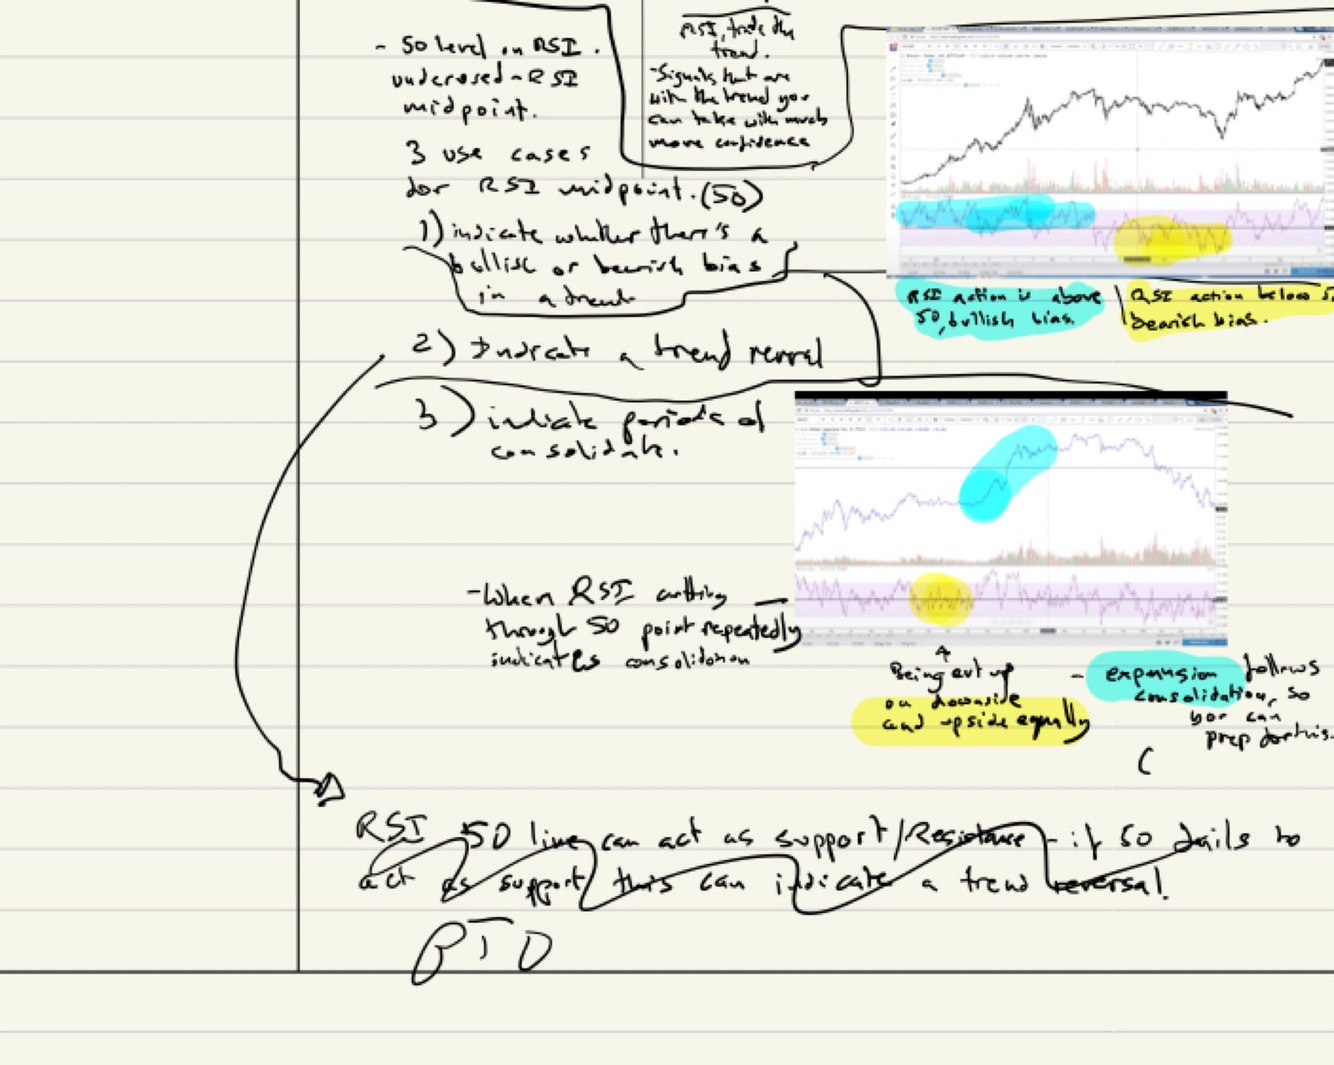 - 50 level on RSI.
underused - RSI
midpoint.
3 use cases
for RSI midpoint. (50)
1) indicate whether there's a
bullish or bearish bias
in a trend
2) Indicate a trend
3) indicate periods of
consolidate.
RSI, trade the
trend.
- Signals that are
with the trend you
can take with much
more confidence
RSI action is above
50, bullish bias.
RSI action below
bearish bias.
- When RSI cutting
through 50 point repeatedly
indicates consolidation
Being cut up
on downside
and upside equally
- expansion follows
consolidation, so
you can
prep for this.
RSI 50 line can act as support/Resistance - if 50 fails to
act as support this can indicate a trend reversal.
BTD